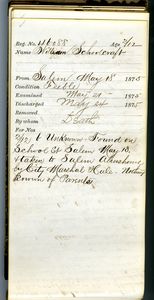 Reg. No. 116288 Age 2/12
Name William Schoolcraft
From Salem May 18 1875
Condition Feeble
Examined May 20 1875
Discharged May 24 1875
Removed
By whom Death
For Nea
2/12 & Unknown - Found on
School St Salem May 18,
& taken to Salem Almshouse
by City Marshal Hale. Nothing
known of Parents